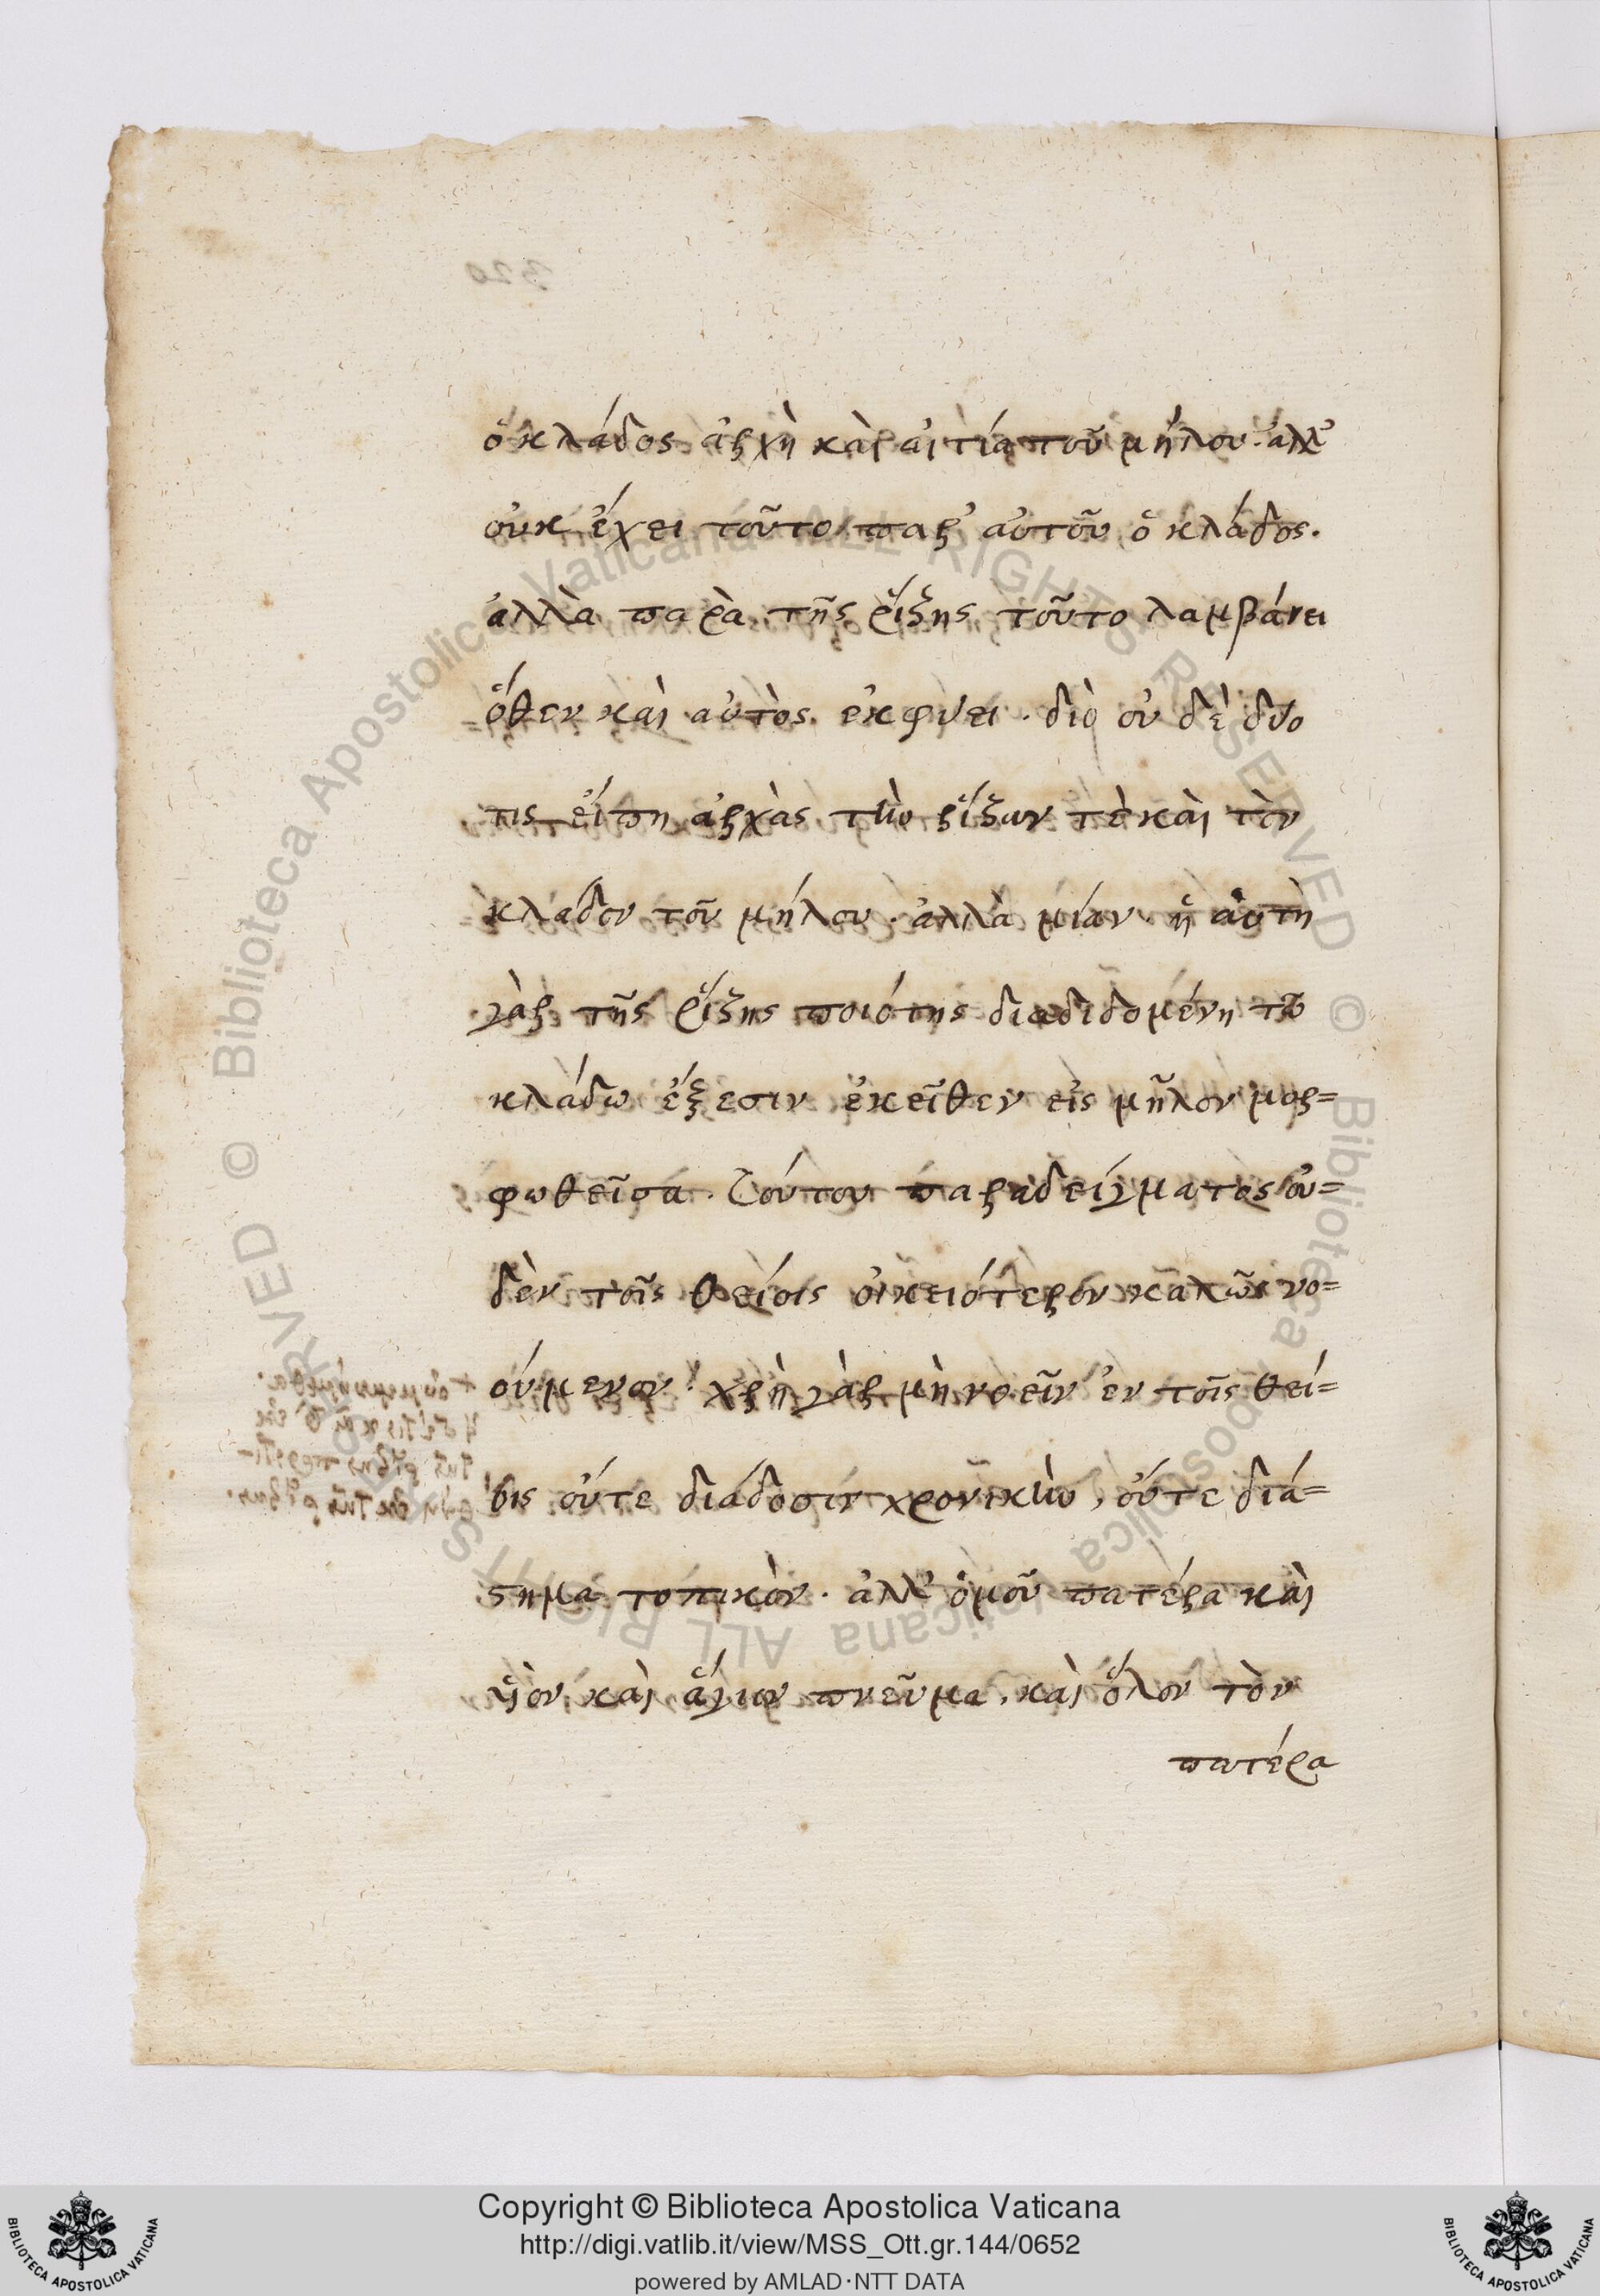 ὁ κλάδος ἀρχὴ καὶ αἰτία τοῦ μήλου. ἀλλ'
οὐκ ἔχει τοῦτο παρ' αὐτοῦ ὁ κλάδος.
ἀλλὰ παρὰ τῆς ῥίζης τοῦτο λαμβάνει
ὅθεν καὶ αὐτὸς ἐκφύει. διὸ οὐ δὲ δύο
τις εἴπη ἀρχὰς τὴν ῥίζαν τὲ καὶ τὸν
κλάδον τοῦ μήλου. ἀλλὰ μίαν. ἡ αὐτὴ
γὰρ τῆς ῥίζης ποιότης διαδιδομένη τῶ
κλάδω ἔξεσιν ἐκεῖθεν εἰς μῆλον μορ=
φωθεῖσα. Τούτου παραδείγματος οὐ=
δὲν τοῖς θείοις οἰκειότερον καλῶς νο=
ούμενον. χρὴ γὰρ μὴ νοεῖν ἐν τοῖς θεί=
οις οὔτε διάδοσιν χρονικὴν, οὔτε διά=
στημα τοπικὸν. ἀλλ' ὁμοῦ πατέρα καὶ
υἱὸν καὶ ἅγιον πνεῦμα. καὶ ὅλον τὸν
πατέρα
Copyright © Biblioteca Apostolica Vaticana
http://digi.vatlib.it/view/MSS_Ott.gr.144/0652
powered by AMLAD·NTT DATA
BIBLIOTECA APOSTOLICA VATICANA
BIBLIOTECA APOSTOLICA VATICANA